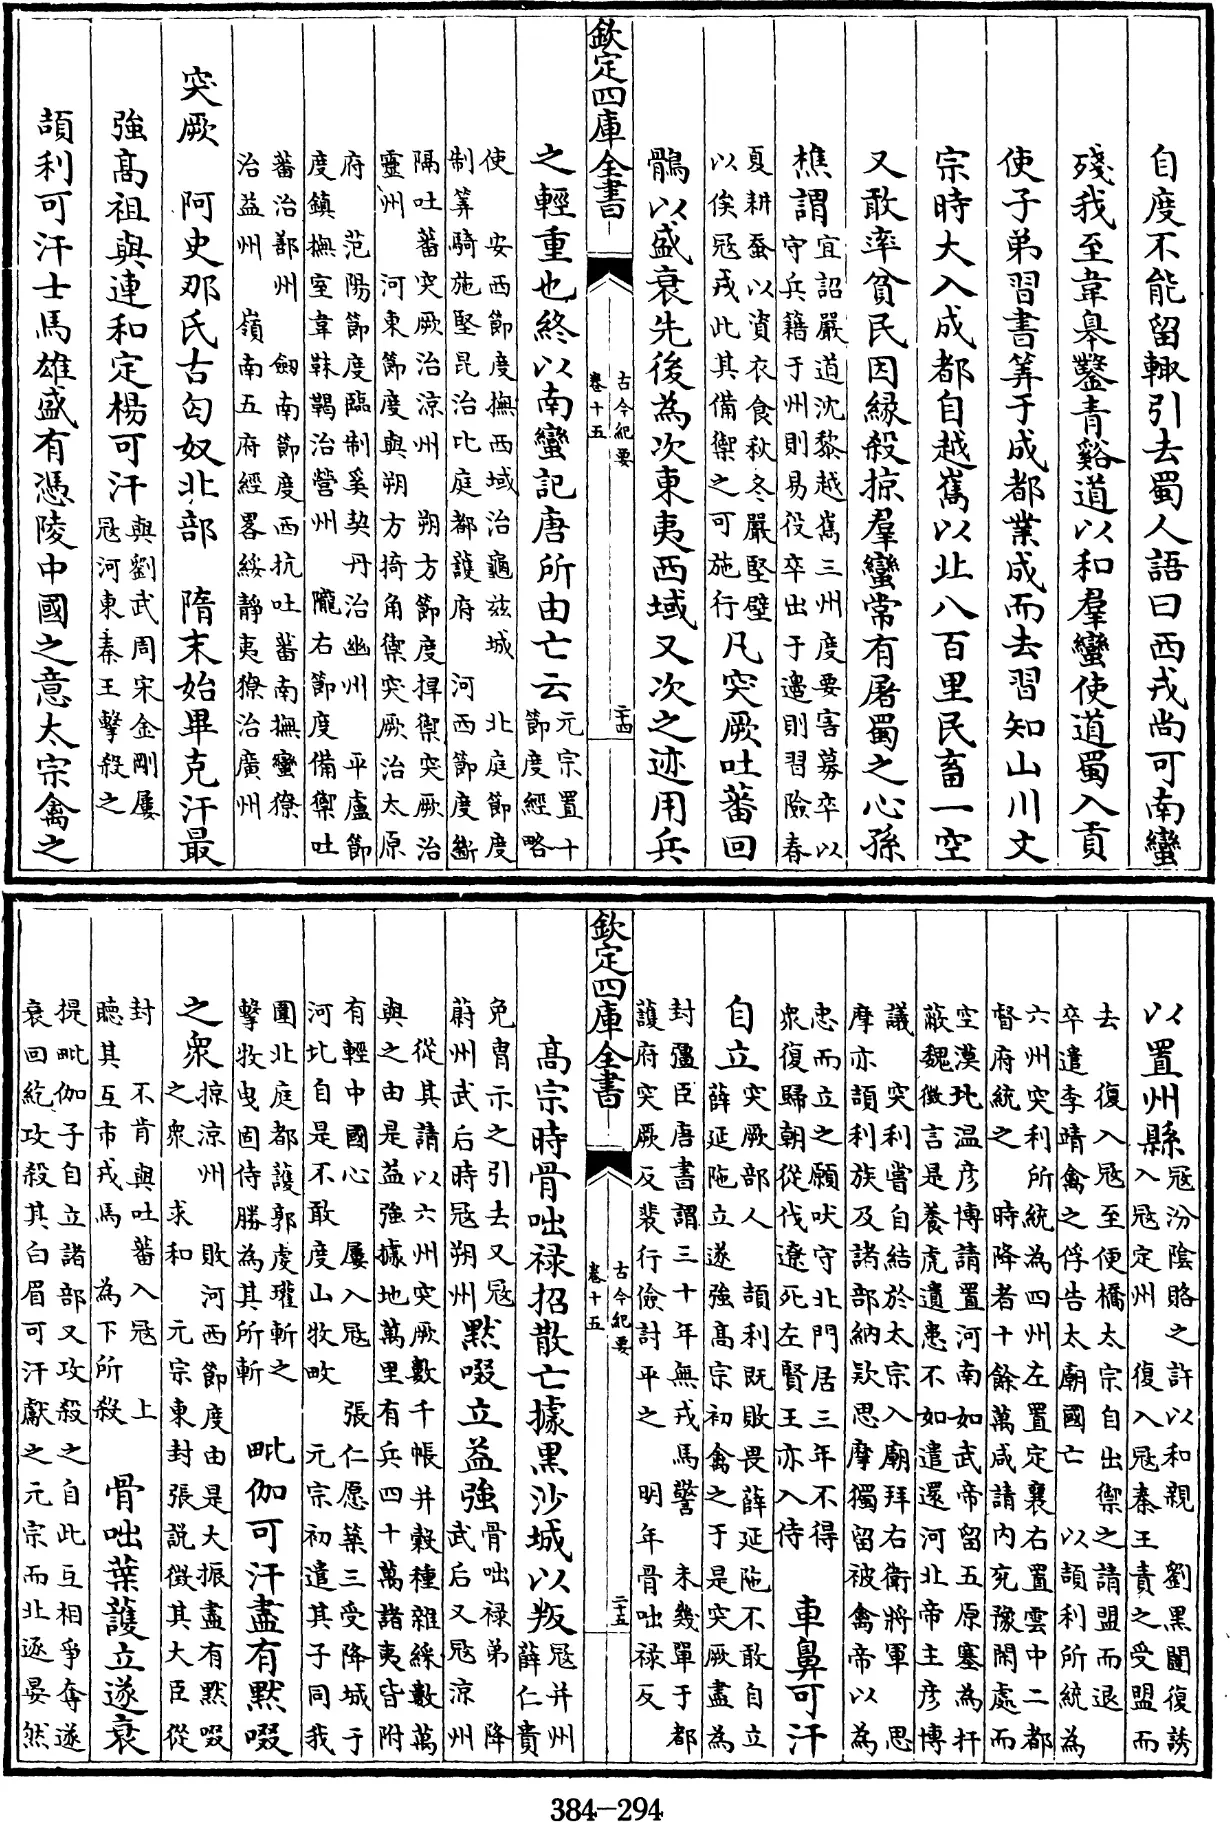 自度不能留輙引去蜀人語曰西戎尚可南蠻
殘我至韋皋鑿青谿道以和羣蠻使道蜀入貢
使子弟習書筭于成都業成而去習知山川文
宗時大入成都自越嶲以北八百里民畜一空
又敢率貧民因緣殺掠羣蠻常有屠蜀之心孫
樵謂宜詔嚴道沈黎越嶲三州度要害募卒以
守兵籍于州則易役卒出于邊則習險春
夏耕蚕以資衣食秋冬嚴堅壁
以俟冦戎此其備禦之可施行凡突厥吐蕃回
鶻以盛衰先後為次東夷西域又次之迹用兵
欽定四庫全書
古今紀要
卷十五
二十四
之輕重也終以南蠻記唐所由亡云元宗置十
節度經略
使 安西節度撫西域治龜兹城 北庭節度
制筭騎施堅昆治北庭都護府 河西節度斷
隔吐蕃突厥治涼州 朔方節度捍禦突厥治
靈州 河東節度與朔方掎角禦突厥治太原
府 范陽節度臨制奚契丹治幽州 平盧節
度鎮撫室韋靺鞨治營州 隴右節度備禦吐
蕃治鄯州 劒南節度西抗吐蕃南撫蠻獠
治益州 嶺南五府經畧綏静夷獠治廣州
突厥 阿史那氏古匈奴北部 隋末始畢克汗最
強髙祖與連和定楊可汗與劉武周宋金剛屢
冦河東秦王擊殺之
頡利可汗士馬雄盛有憑陵中國之意太宗禽之
以置州縣冦汾陰賂之許以和親 劉黑闥復誘
入冦定州 復入冦秦王責之受盟而
去 復入冦至便橋太宗自出禦之請盟而退
卒遣李靖禽之俘告太廟國亡 以頡利所統為
六州突利所統為四州左置定襄右置雲中二都
督府統之 時降者十餘萬咸請内兖豫閑處而
空漠北温彦博請置河南如武帝留五原塞為扞
蔽魏徴言是養虎遺患不如遣還河北帝主彦博
議 突利嘗自結於太宗入廟拜右衛將軍 思
摩亦頡利族及諸部納欵思摩獨留被禽帝以為
忠而立之願吠守北門居三年不得
衆復歸朝從伐遼死左賢王亦入侍 車鼻可汗
自立突厥部人 頡利既敗畏薛延陁不敢自立
薛延陁立遂強髙宗初禽之于是突厥盡為
封疆臣唐書謂三十年無戎馬警 未幾單于都
護府突厥反裴行儉討平之 明年骨咄禄反
欽定四庫全書
古今紀要
卷十五
二十五
髙宗時骨咄禄招散亡據黑沙城以叛冦并州
薛仁貴
免冑示之引去又冦
蔚州武后時冦朔州默啜立益強骨咄禄弟 降
武后又冦涼州
從其請以六州突厥數千帳并穀種雜綵數萬
與之由是益強據地萬里有兵四十萬諸夷皆附
有輕中國心 屢入冦 張仁愿築三受降城于
河北自是不敢度山牧畋 元宗初遣其子同我
圍北庭都護郭虔瓘斬之
擊牧曳固侍勝為其所斬 毗伽可汗盡有默啜
之衆掠涼州 敗河西節度由是大振盡有默啜
之衆 求和 元宗東封張説徴其大臣從
封 不肯與吐蕃入冦 上
聽其互市戎馬 為下所殺 骨咄葉護立遂衰
提毗伽子自立諸部又攻殺之自此互相爭奪遂
衰回紇攻殺其白眉可汗獻之元宗而北逐晏然
384-294